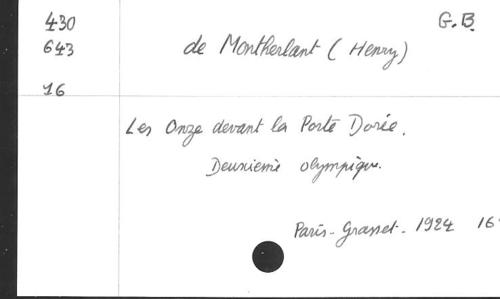 430
G.B.
643
de Montherlant (Henry)
16
Les Onze devant la Porte Dorée.
Deuxieme olympique.
Paris - Grasset - 1924 16